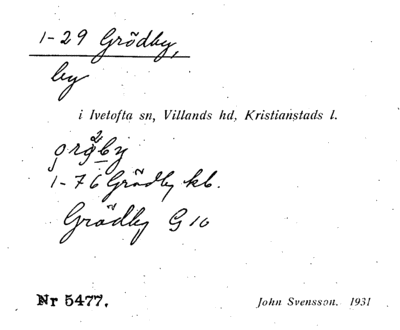 1-29 Grödby,
by
i Ivetofta sn, Villands hd, Kristianstads l.
1-76 Grödby kb.
Grödby G 10
Nr 5477.
John Svensson. 1931